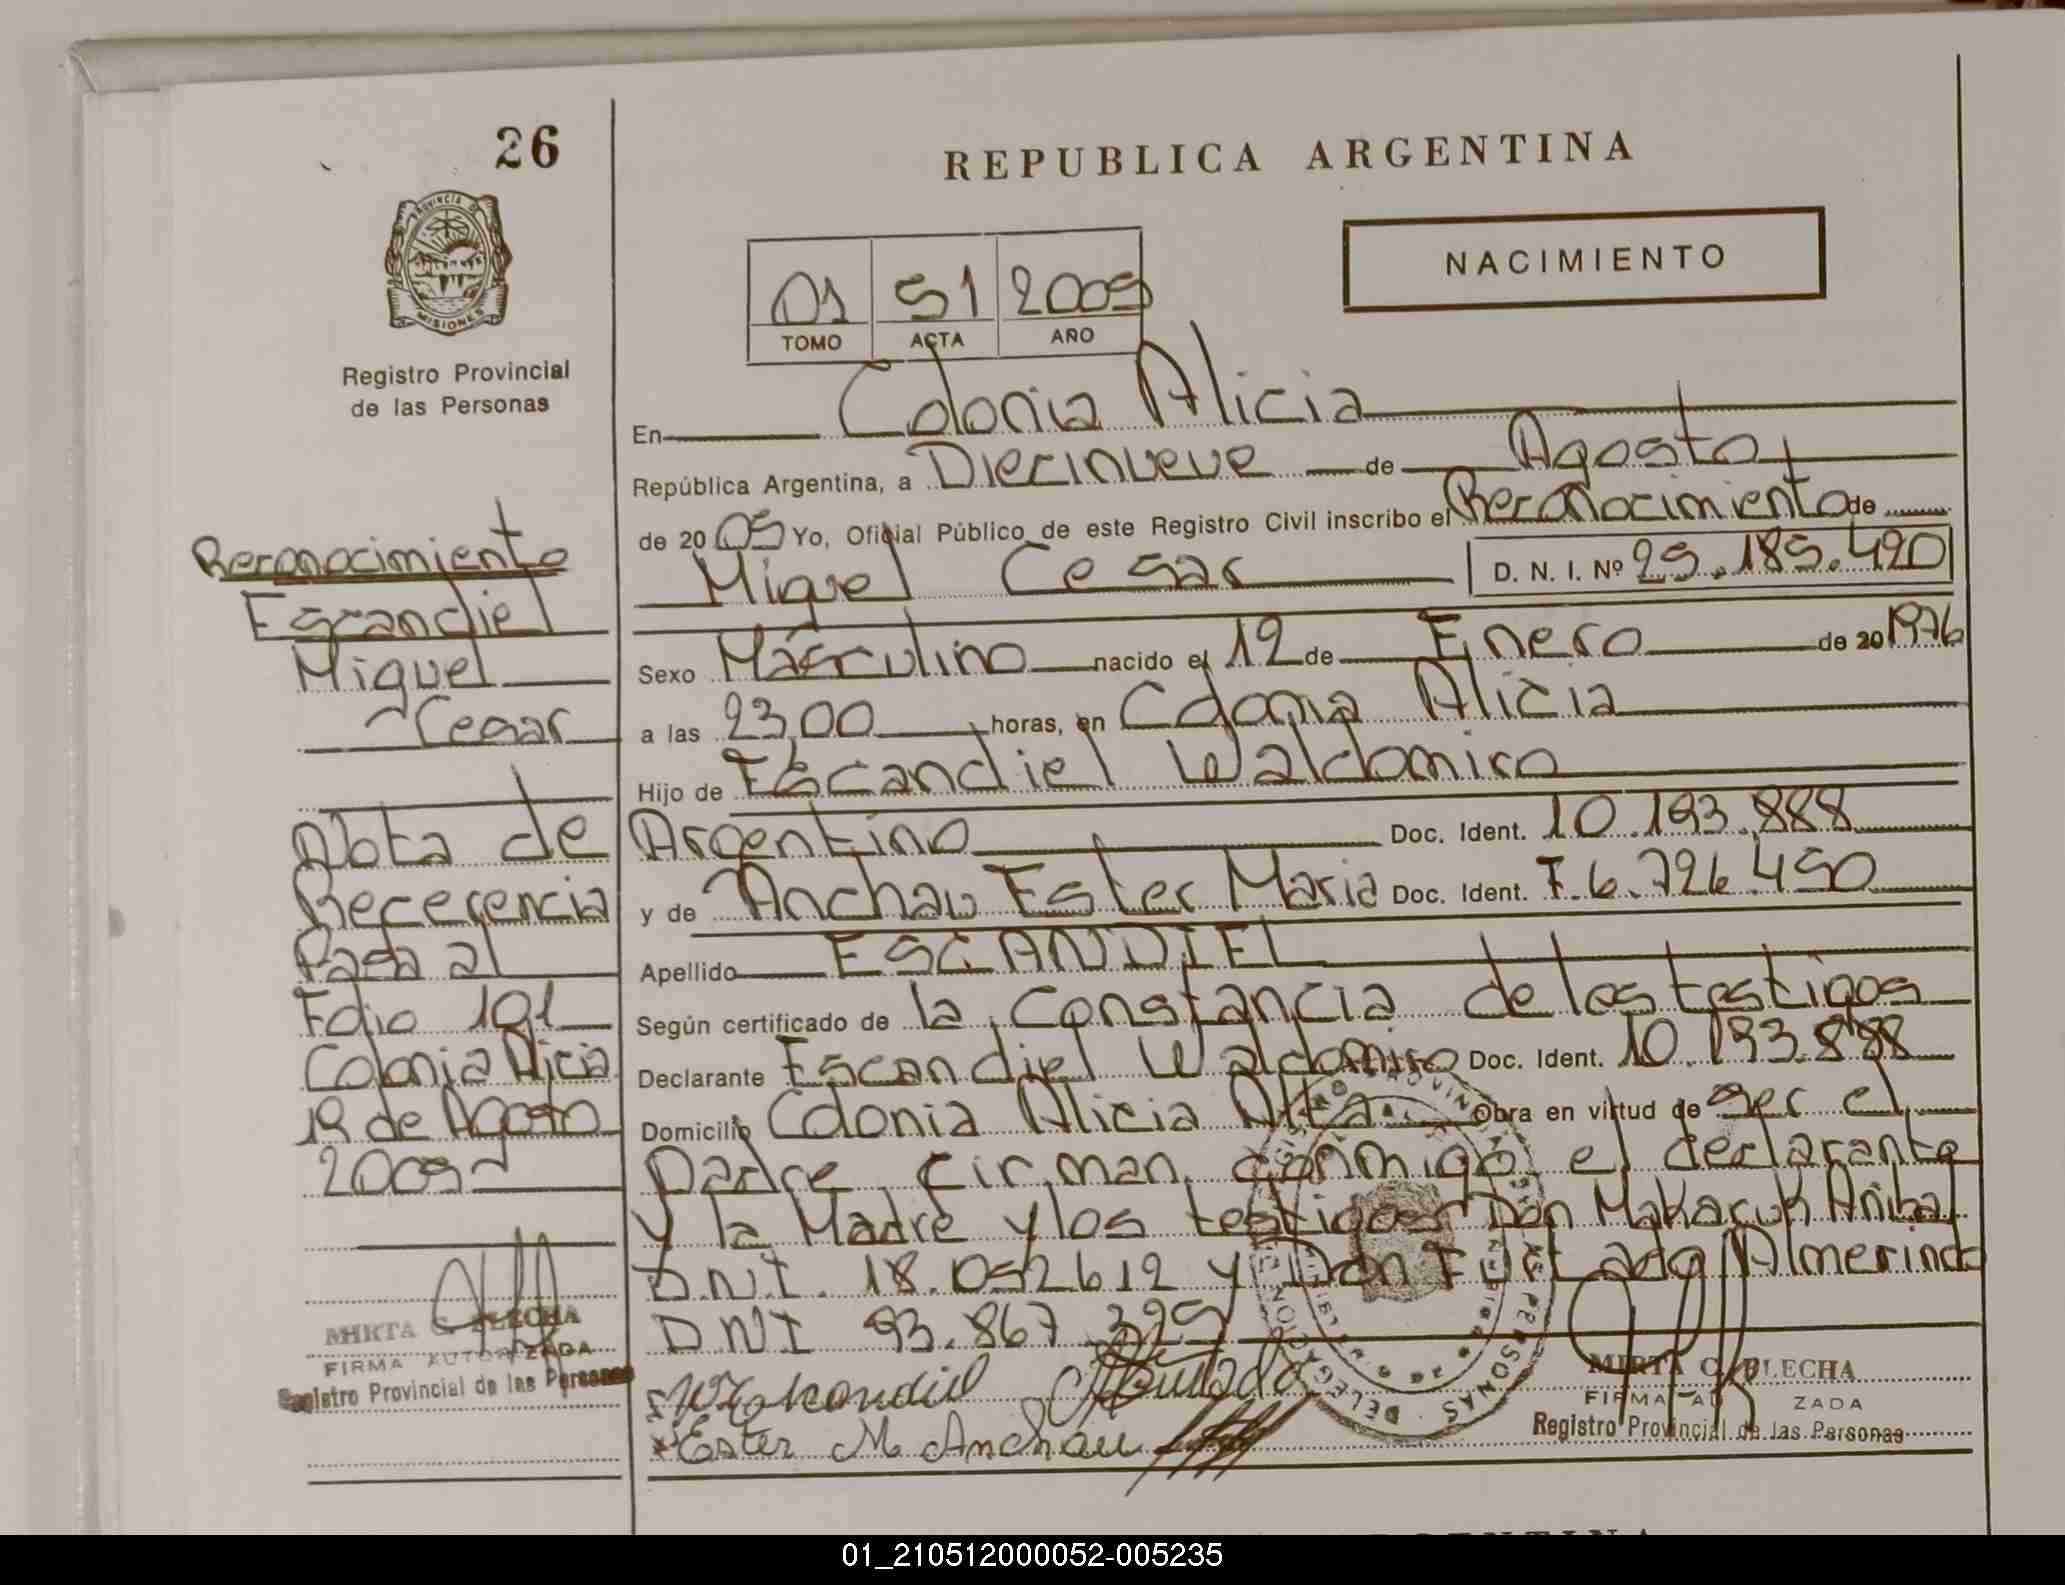 26
REPUBLICA ARGENTINA
NACIMIENTO
PROVINCIA DE
MISIONES
Registro Provincial
de las Personas
01 51 2005
TOMO ACTA AÑO
En Colonia Alicia
República Argentina, a Diecinueve de Agosto
de 20 05 Yo, Oficial Público de este Registro Civil inscribo el Reconocimiento de
Miguel Cesar D. N. I. Nº 25.185.420
Sexo Masculino nacido el 12 de Enero de 20 1976
a las 23,00 horas, en Colonia Alicia
Hijo de Escandiel Waldomiro
Argentino Doc. Ident. 10.193.888
y de Anchau Ester Maria Doc. Ident. F.6.726.450
Apellido ESCANDIEL
Según certificado de la Constancia de los testigos
Declarante Escandiel Waldomiro Doc. Ident. 10.193.888
Domicilio Colonia Alicia Alta Obra en virtud de ser el
Padre firman conmigo el declarante
y la Madre y los testigos Don Makaruk Anibal
D.N.I. 18.052612 y Don Furtado Almerindo
DNI 93.867.325
Ester M Anchau
MIRTA G. FLECHA
FIRMA AU ZADA
Registro Provincial de las Personas
Reconocimiento
Escandiel
Miguel
Cesar
Nota de
Rececencia
Pasa al
Folio 101
Colonia Alicia
19 de Agosto
2005
MIRTA G FLECHA
FIRMA AUTORIZADA
Registro Provincial de las Personas
01_210512000052-005235